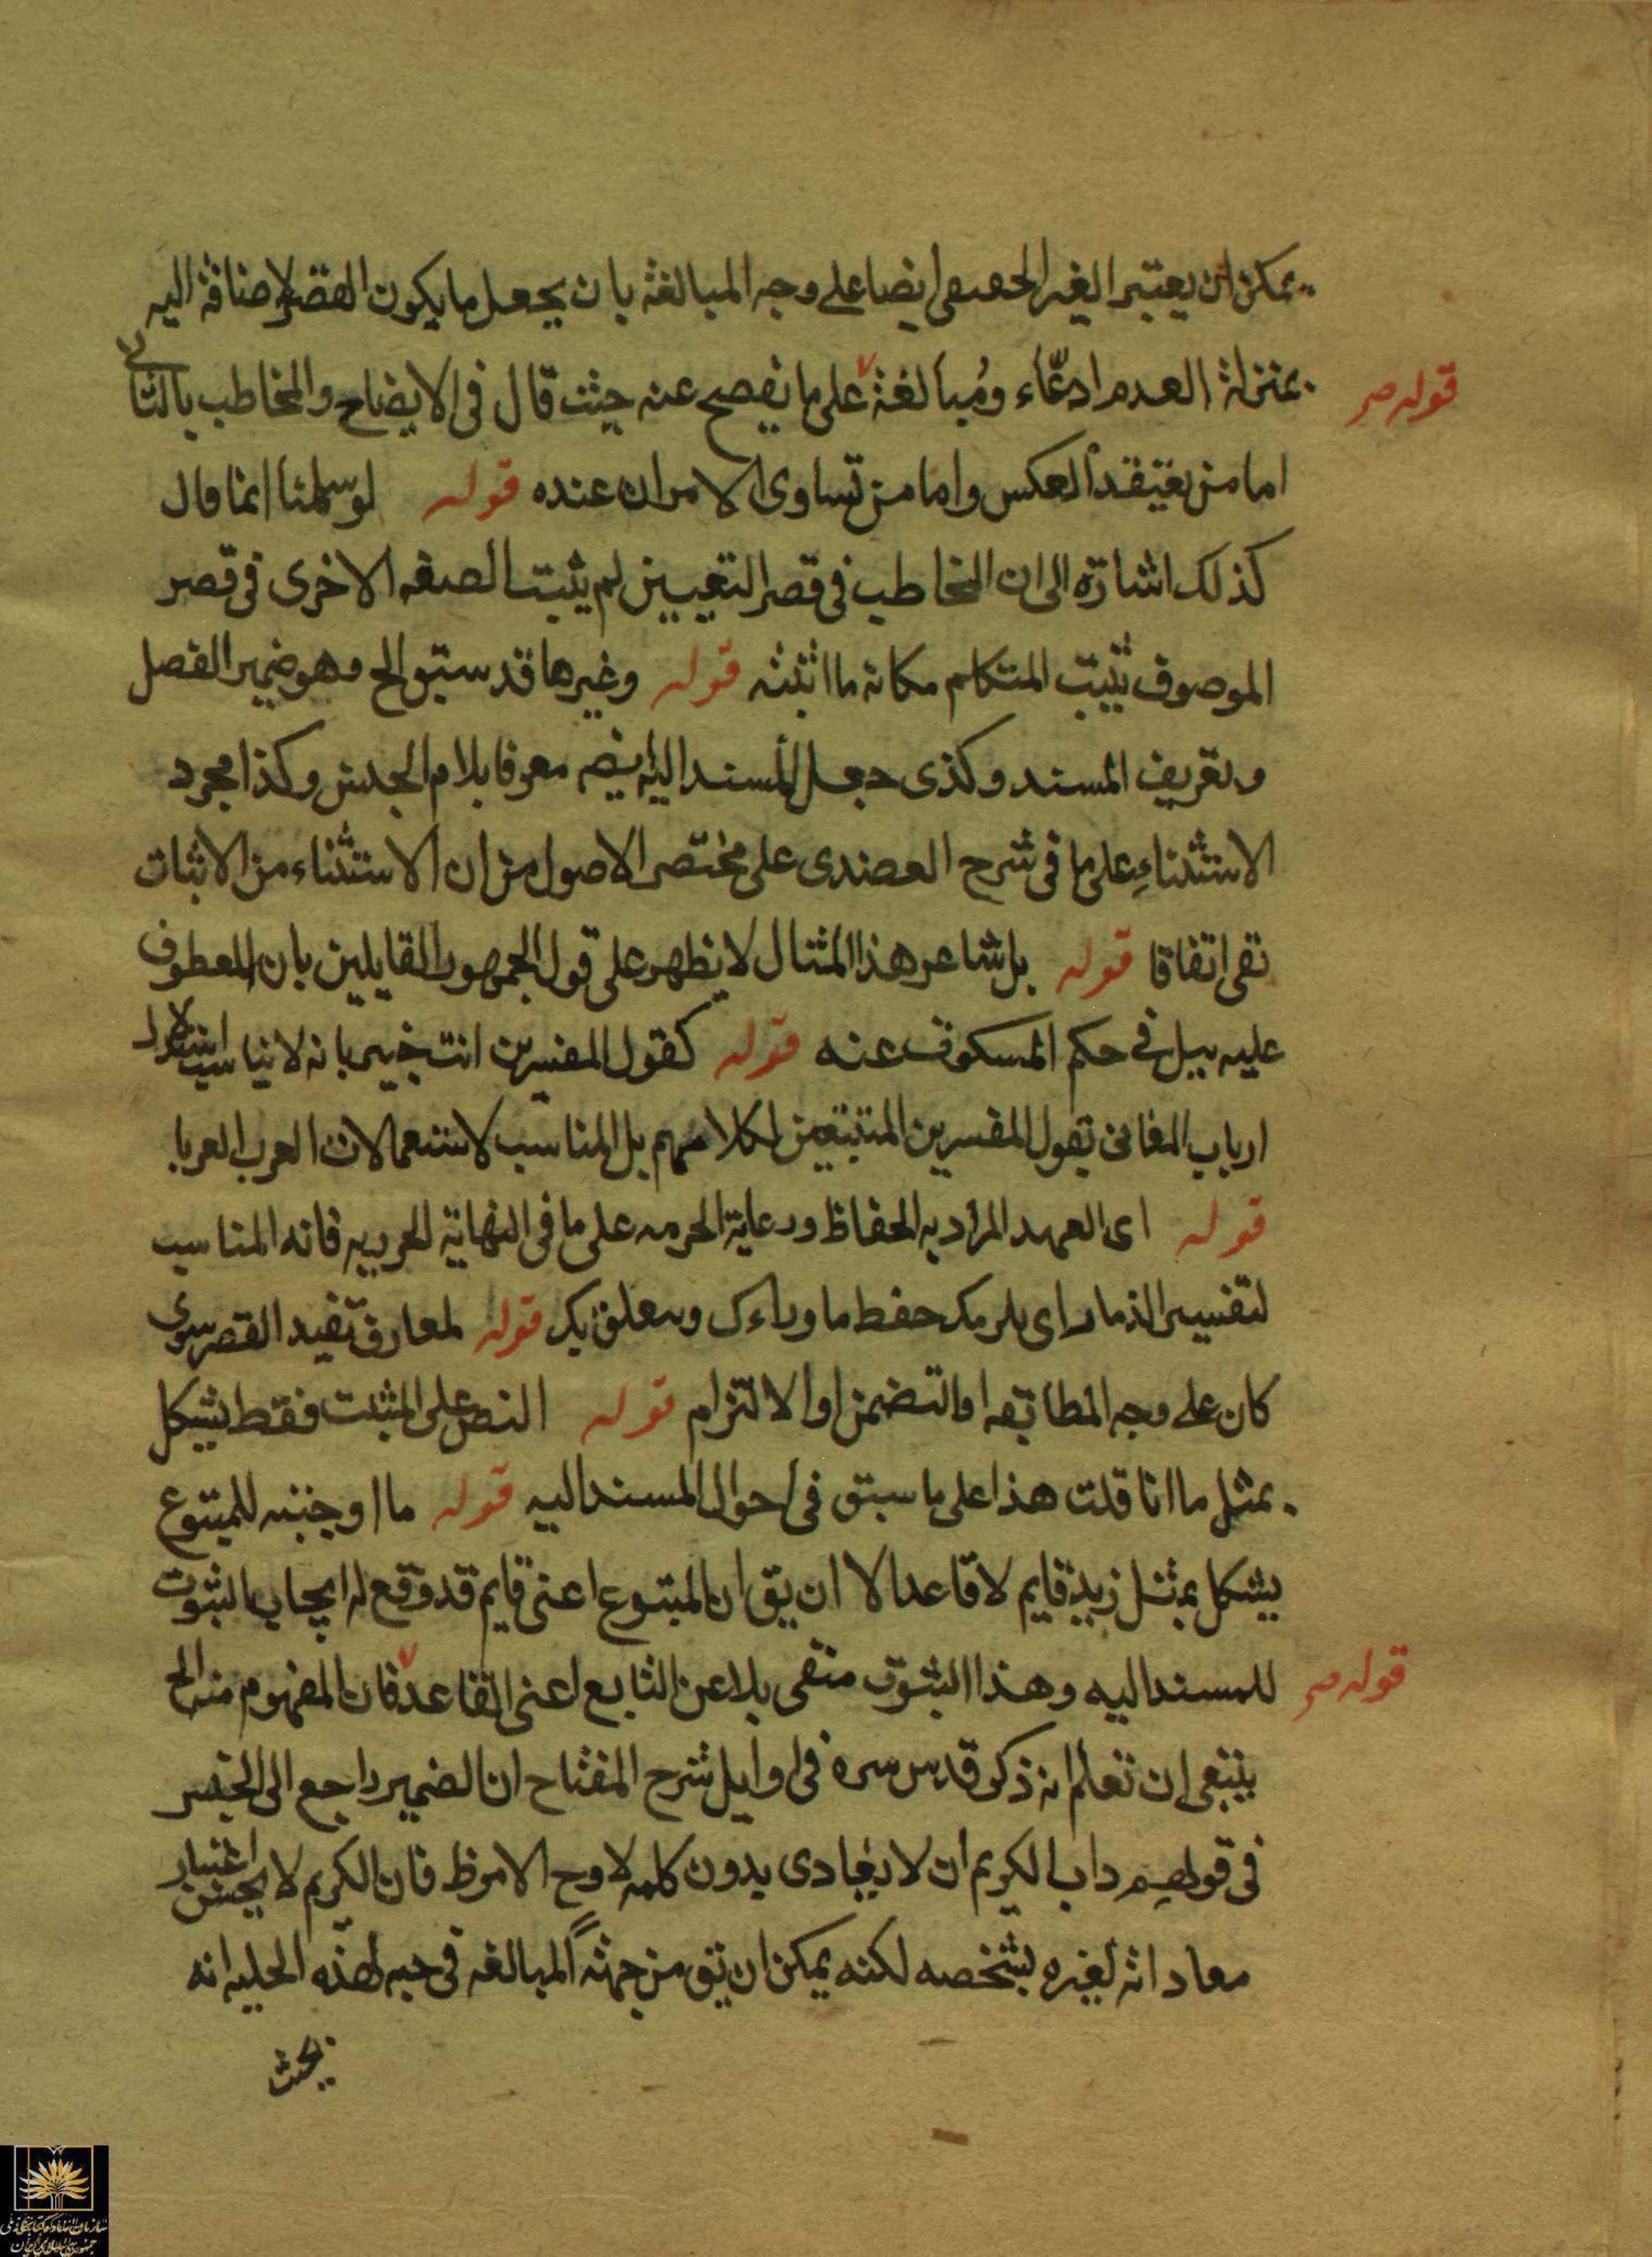 يمكن ان يعتبر الغير الحقيقى ايضا على وجه المبالغة بان يجعل ما يكون القصر بالاضافة اليه
بمنزلة العدم ادعّاء ومُبالغة على ما يفصح عنه حيث قال فى الايضاح والمخاطب بالثانى
قوله ص
اما من يعتقد العكس واما من تساوى الامران عنده قوله لو سلمنا انما قال
كذلك اشارة الى ان المخاطب فى قصر التعيين لم يثبت الصفه الاخرى فى قصر
الموصوف يثبت المتكلم مكانه ما اثبته قوله وغيرها قد سبق الح وهو ضمير الفصل
وتعريف المسند وكذى جعل المسند اليه ايضـ معرفا بلام الجنس وكذا مجرد
الاستثناءِ على ما فى شرح العضدى على مختصر الاصول من ان الاستثناء من الاثبات
نفى اتفاقا قوله بل شاعر هذا المثال لا يظهر على قول الجمهور القايلين بان المعطوف
عليه ببل فى حكم المسكوت عنه قوله كقول المفسرين انت خبير بانه لا يناسب استدلال
ارباب المعانى بقول المفسرين المتتبعين لكلامهم بل المناسب لاستعمالات العرب العربا
قوله اى العهد المراد به الحفاظ ورعاية الحرمه على ما فى النهاية الجزريه فانه المناسب
لتفسير الذمار اى يلزمك حفظ ما وراءك ويتعلق بك قوله لمعان تفيد القصر سوى
كان على وجه المطابقه او التضمن او الالتزام قوله النص على المثبت فقط يشكل
بمثل ما انا قلت هذا على ما سبق فى احوال المسند اليه قوله ما اوجبته للمتبوع
يشكل بمثل زيد قايم لا قاعد الا ان يق ان المتبوع اعنى قايم قد وقع له ايجاب الثبوت
للمسند اليه وهذا الثبوت منفى بلا عن التابع اعنى القاعد فان المفهوم منه الح
قوله ص
ينبغى ان تعلم انه ذكر قدس سره فى اوايل شرح المفتاح ان الضمير راجع الى الجنس
فى قولهم داب الكريم ان لا يعادى بدون كلمه لا وح الامر ظ فان الكريم لا يحسن اعتبار
معاداته لغيره بشخصه لكنه يمكن ان يق من جهة المبالغه فى حبه لهذه الحليه انه
بحيث